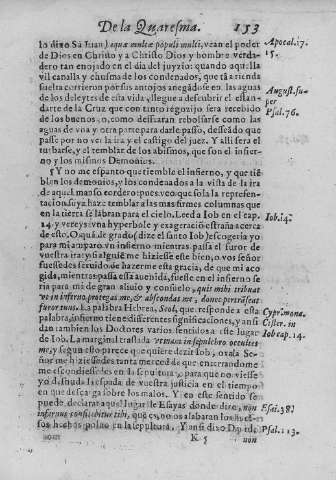 De la Quaresma. 153
lo dixo Sã Iuan) aquæ multæ populi multi, vean el poder
de Dios en Christo y a Christo Dios y hombre verda-
dero tan enojado en el dia del juyzio: quando aquella
vil canalla y chusma de los condenados, que tã a rienda
suelta corrieron por sus antojos anegãdose en las aguas
de los deleytes de esta vida, llegue a descubrir el estan-
darte de la Cruz que con tanto regozijo sera recebido
de los buenos, o, como dessearan rebolsarse como las
aguas de vna y otra parte para darle passo, desseãdo que
passe por no ver la ira y el castigo del juez. Y alli sera el
turbarse, y el temblar de los abismos, que son el infier-
no y los mismos Demonios.
5 Y no me espanto que tiemble el infierno, y que tiẽ
blen los demonios, y los condenados a la vista de la ira
de aquel manso cordero: pues veo que sola la represen-
tacion suya haze temblar a las mas firmes columnas que
en la tierra se labran para el cielo. Leed a Iob en el cap.
14. y vereys vna hyperbole y exageraciõ estraña acerca
de esto. O quã de grado (dize el santo Iob) escogeria yo
para mi amparo vn infierno mientras passa el furor de
vuestra ira: y si alguiẽ me hiziesse esse bien, o vos señor
fuessedes seruido de hazerme esta gracia, de que mi aco
gida, mientras passa essa auenida, fuesse en el infierno se
ria para mi de gran aliuio y consuelo, quis mihi tribuat
vt in inferno protegas me, & abscondas me, donec pertrãseat
furor tuus. La palabra Hebrea, Seol, que responde a esta
palabra, infierno tiene diferentes significaciones, y ansi
dan tambien los Doctores varios sentidos a este lugar
de Iob. La marginal traslada vtinam in sepulchro occultes
me, y segun esto parece que quiere dezir Iob, oxala Se-
ñor me hiziessedes tanta merced de que encerrandome
me escondiessedes en la sepultura, para que no viesse
yo desnuda la espada de vuestra justicia en el tiempo
en que descarga sobre los malos. Y en este sentido se
puede declarar aquel lugar de Esayas donde dize, non
infernus confitebitur tibi, que es, no os alabaran los hues-
sos hechos poluo en la sepultura. Y ansi dixo Dauid,
K 5 non
Apocal. 17.
15.
August. su-
per
Psal. 76.
Iob. 14.
Cypr. mona.
Cister. in
Iob cap. 14.
Esai. 38.
Psal. 113.